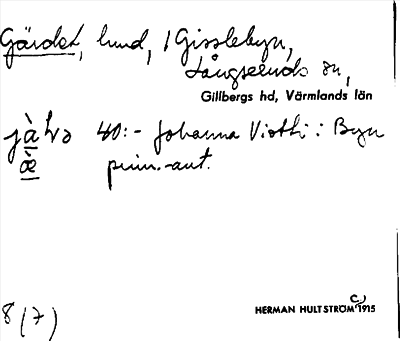 Gärdet, lund, / Gisslebyn,
Långseruds sn,
Gillbergs hd, Värmlands län
40:- Johanna Viotti i Byn
prim.-ant.
8 (7)
HERMAN HULTSTRÖM C) 1915